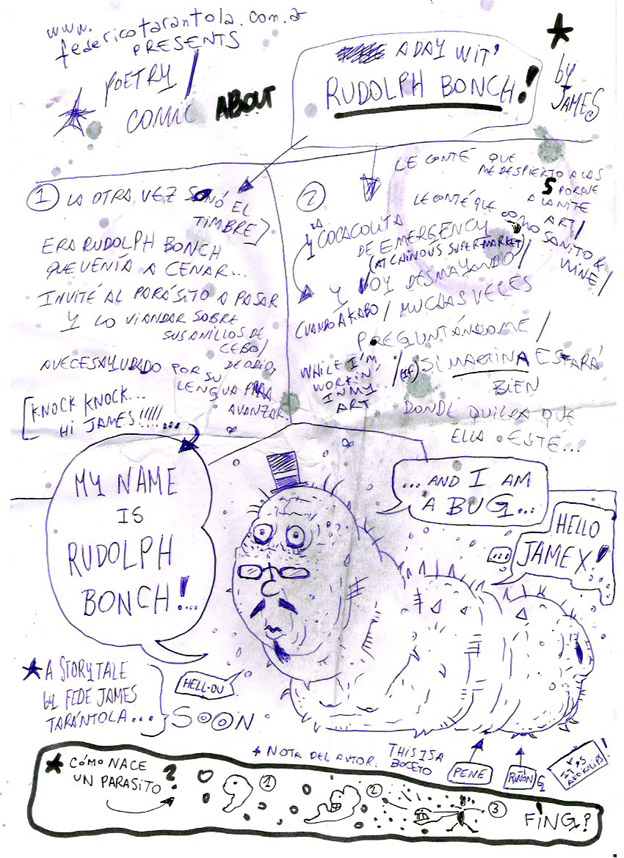 www.
federicotarantola.com.ar
PRESENTS
POETRY/
COMIC ABOUT
A DAY WIT'
RUDOLPH BONCH!
by
JAMES
1 LA OTRA VEZ SONÓ EL
TIMBRE
ERA RUDOLPH BONCH
QUE VENÍA A CENAR...
INVITÉ AL PARÁSITO A PASAR
Y LO VI ANDAR SOBRE
SUS ANILLOS DE
CEBO/
DE ODIO,
A VECES AYUDADO POR SU
LENGUA PARA
AVANZAR
[KNOCK KNOCK...
HI JAMES!!!!!...
2
LE CONTÉ QUE
ME DESPIERTO A LAS
5 PORQUE
ART/
LE CONTÉ QUE COMO SANITO &
WINE/
Y LA COCACOLITA
DE EMERGENCY
(AT CAINOUS SUPERMARKET)
Y VOY DESMAYANDO/
CUANDO AKABO/ MUCHAS VECES
PREGUNTÁNDOME/
WHILE I'M
WORKIN'
IN MY
ART
(IF) SI MARTINA ESTARÁ
BIEN
DONDE QUIERA QUE
ELLA ESTE...
MY NAME
IS
RUDOLPH
BONCH!...
...AND I AM
A BUG...
HELLO
JAMEX!
...
HELL-OU
A STORYTALE
by FEDE JAMES
TARÁNTOLA...
SOON
* NOTA DEL AUTOR: THIS IS A
BOCETO
PENE
RIÑÓN
CÓMO NACE
UN PARASITO?
1
2
3
FING?